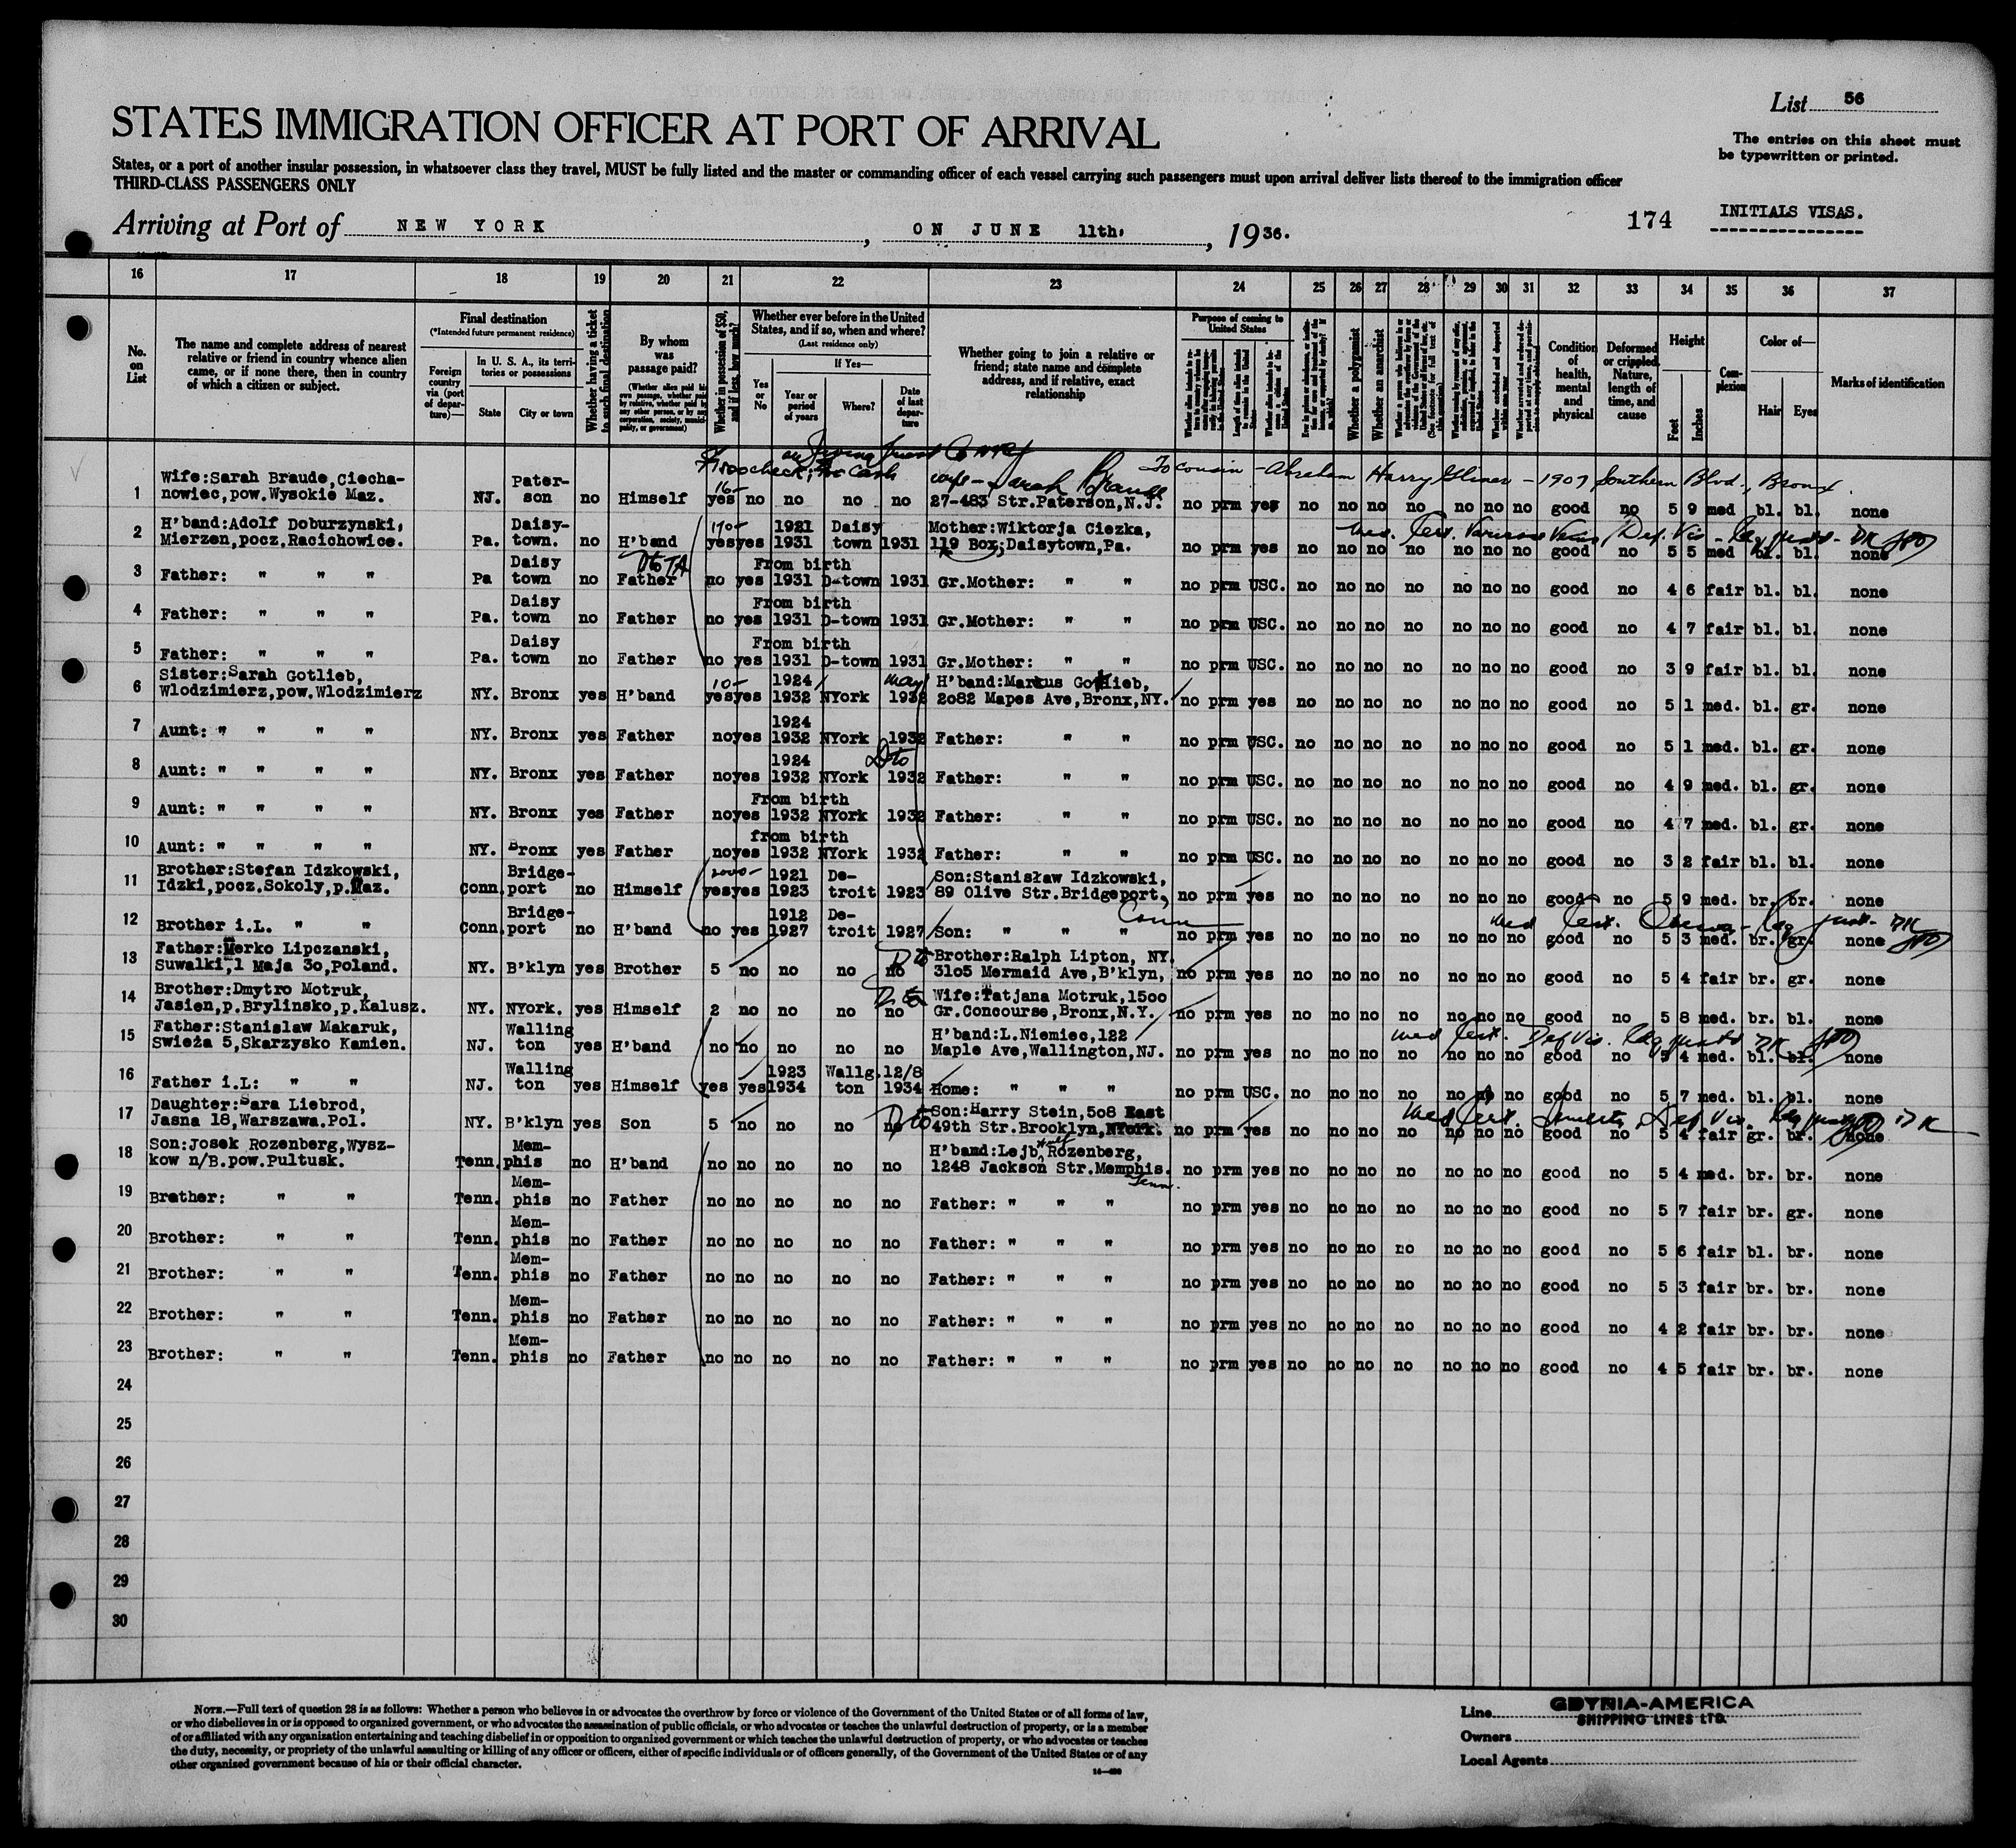 List 56
STATES IMMIGRATION OFFICER AT PORT OF ARRIVAL
The entries on this sheet must
be typewritten or printed.
States, or a port of another insular possession, in whatsoever class they travel, MUST be fully listed and the master or commanding officer of each vessel carrying such passengers must upon arrival deliver lists thereof to the immigration officer
THIRD-CLASS PASSENGERS ONLY
Arriving at Port of NEW YORK, ON JUNE 11th, 1936. 174 INITIALS VISAS.
16 17 18 19 20 21 22 23 24 25 26 27 28 29 30 31 32 33 34 35 36 37
No. on List
The name and complete address of nearest relative or friend in country whence alien came, or if none there, then in country of which a citizen or subject.
Final destination
(*Intended future permanent residence)
Foreign country via (port of departure)—
In U. S. A., its territories or possessions
State City or town
Whether having a ticket to such final destination
By whom was passage paid?
(Whether alien paid his own passage, whether paid by relative, whether paid by any other person, or by any corporation, society, municipality, or government)
Whether in possession of $50, and if less, how much?
Whether ever before in the United States, and if so, when and where?
(Last residence only)
Yes or No
If Yes—
Year or period of years Where? Date of last departure
Whether going to join a relative or friend; state name and complete address, and if relative, exact relationship
Purpose of coming to United States
Whether a polygamist
Whether an anarchist
Condition of health, mental and physical
Deformed or crippled. Nature, length of time, and cause
Height
Feet Inches
Complexion
Color of—
Hair Eyes
Marks of identification
$1500 check; Cash
wife - Sarah Braude To cousin - Abraham Harry Gliner - 1907 Southern Blvd., Bronx
1 Wife:Sarah Braude,Ciecha-
nowiec,pow.Wysokie Maz. NJ. Pater-
son no Himself 16- yes no no no no 27-483 Str.Paterson,N.J. no prm yes no no no no no no no good no 5 9 med bl. bl. none
2 H'band:Adolf Doburzynski,
Mierzen,pocz.Racichowice. Pa. Daisy-
town. no H'band 170- yes yes 1921
1931 Daisy
town 1931 Mother:Wiktorja Ciezka,
119 Box;Daisytown,Pa. no prm yes no no no no no no no good no 5 5 med bl. bl. none
Med. Cert. Varicose Veins, Def. Vis
3 Father: " " " Pa Daisy
town no Father no yes From birth
1931 D-town 1931 Gr.Mother: " " no prm USC. no no no no no no no good no 4 6 fair bl. bl. none
4 Father: " " " Pa. Daisy
town no Father no yes From birth
1931 D-town 1931 Gr.Mother: " " no prm USC. no no no no no no no good no 4 7 fair bl. bl. none
5 Father: " " " Pa. Daisy
town no Father no yes From birth
1931 D-town 1931 Gr.Mother: " " no prm USC. no no no no no no no good no 3 9 fair bl. bl. none
6 Sister:Sarah Gotlieb,
Wlodzimierz,pow.Wlodzimierz NY. Bronx yes H'band 10- yes yes 1924
1932 NYork May 1932 H'band:Markus Gotlieb,
2082 Mapes Ave,Bronx,NY. no prm yes no no no no no no no good no 5 1 med. bl. gr. none
7 Aunt: " " " " NY. Bronx yes Father no yes 1924
1932 NYork 1932 Father: " " no prm USC. no no no no no no no good no 5 1 med. bl. gr. none
8 Aunt: " " " " NY. Bronx yes Father no yes 1924
1932 NYork Dto 1932 Father: " " no prm USC. no no no no no no no good no 4 9 med. bl. gr. none
9 Aunt: " " " " NY. Bronx yes Father no yes From birth
1932 NYork 1932 Father: " " no prm USC. no no no no no no no good no 4 7 med. bl. gr. none
10 Aunt: " " " " NY. Bronx yes Father no yes from birth
1932 NYork 1932 Father: " " no prm USC. no no no no no no no good no 3 2 fair bl. bl. none
11 Brother:Stefan Idzkowski,
Idzki,pocz.Sokoly,p.Maz. Conn. Bridge-
port no Himself 2000- yes yes 1921
1923 De-
troit 1923 Son:Stanisław Idzkowski,
89 Olive Str.Bridgeport, Conn no prm yes no no no no no no no good no 5 9 med. br. br. none
12 Brother i.L. " " Conn. Bridge-
port no H'band no yes 1912
1927 De-
troit 1927 Son: " " " no prm yes no no no no no no no good no 5 3 med. br. gr. none
Med Cert.
13 Father:Merko Lipczanski,
Suwalki,1 Maja 3o,Poland. NY. B'klyn yes Brother 5 no no no no Dto Brother:Ralph Lipton, NY.
31o5 Mermaid Ave,B'klyn, no prm yes no no no no no no no good no 5 4 fair br. gr. none
14 Brother:Dmytro Motruk,
Jasien,p.Brylinsko,p.Kalusz. NY. NYork. yes Himself 2 no no no no Dto Wife:Tatjana Motruk,15oo
Gr.Concourse,Bronx,N.Y. no prm yes no no no no no no no good no 5 8 med. br. bl. none
15 Father:Stanislaw Makaruk,
Swieża 5,Skarzysko Kamien. NJ. Walling
ton yes H'band no no no no no H'band:L.Niemiec,122
Maple Ave,Wallington,NJ. no prm yes no no no no no no no good no 5 4 med. bl. bl. none
Med Cert. Def Vis.
16 Father i.L: " " NJ. Walling
ton yes Himself yes yes 1923
1934 Wallg.
ton 12/8
1934 Home: " " " no prm USC. no no no no no no no good no 5 7 med. bl. bl. none
17 Daughter:Sara Liebrod,
Jasna 18,Warszawa.Pol. NY. B'klyn yes Son 5 no no no no Dto Son:Harry Stein,5o8 East
49th Str.Brooklyn,NYork. no prm yes no no no no no no no good no 5 4 fair gr. br. none
Med Cert. Senility, Def Vis.
18 Son:Josek Rozenberg,Wysz-
kow n/B.pow.Pultusk. Tenn. Mem-
phis no H'band no no no no no H'band:Lejb Rozenberg,
1248 Jackson Str.Memphis. Tenn. no prm yes no no no no no no no good no 5 4 med. br. br. none
19 Brather: " " Tenn. Mem-
phis no Father no no no no no Father: " " " no prm yes no no no no no no no good no 5 7 fair br. gr. none
20 Brother: " " Tenn. Mem-
phis no Father no no no no no Father: " " " no prm yes no no no no no no no good no 5 6 fair bl. br. none
21 Brother: " " Tenn. Mem-
phis no Father no no no no no Father: " " " no prm yes no no no no no no no good no 5 3 fair br. br. none
22 Brother: " " Tenn. Mem-
phis no Father no no no no no Father: " " " no prm yes no no no no no no no good no 4 2 fair br. br. none
23 Brother: " " Tenn. Mem-
phis no Father no no no no no Father: " " " no prm yes no no no no no no no good no 4 5 fair br. br. none
24
25
26
27
28
29
30
NOTE.—Full text of question 28 is as follows: Whether a person who believes in or advocates the overthrow by force or violence of the Government of the United States or of all forms of law,
or who disbelieves in or is opposed to organized government, or who advocates the assassination of public officials, or who advocates or teaches the unlawful destruction of property, or is a member
of or affiliated with any organization entertaining and teaching disbelief in or opposition to organized government or which teaches the unlawful destruction of property, or who advocates or teaches
the duty, necessity, or propriety of the unlawful assaulting or killing of any officer or officers, either of specific individuals or of officers generally, of the Government of the United States or of any
other organized government because of his or their official character.
Line GDYNIA-AMERICA
SHIPPING LINES LTD.
Owners
Local Agents